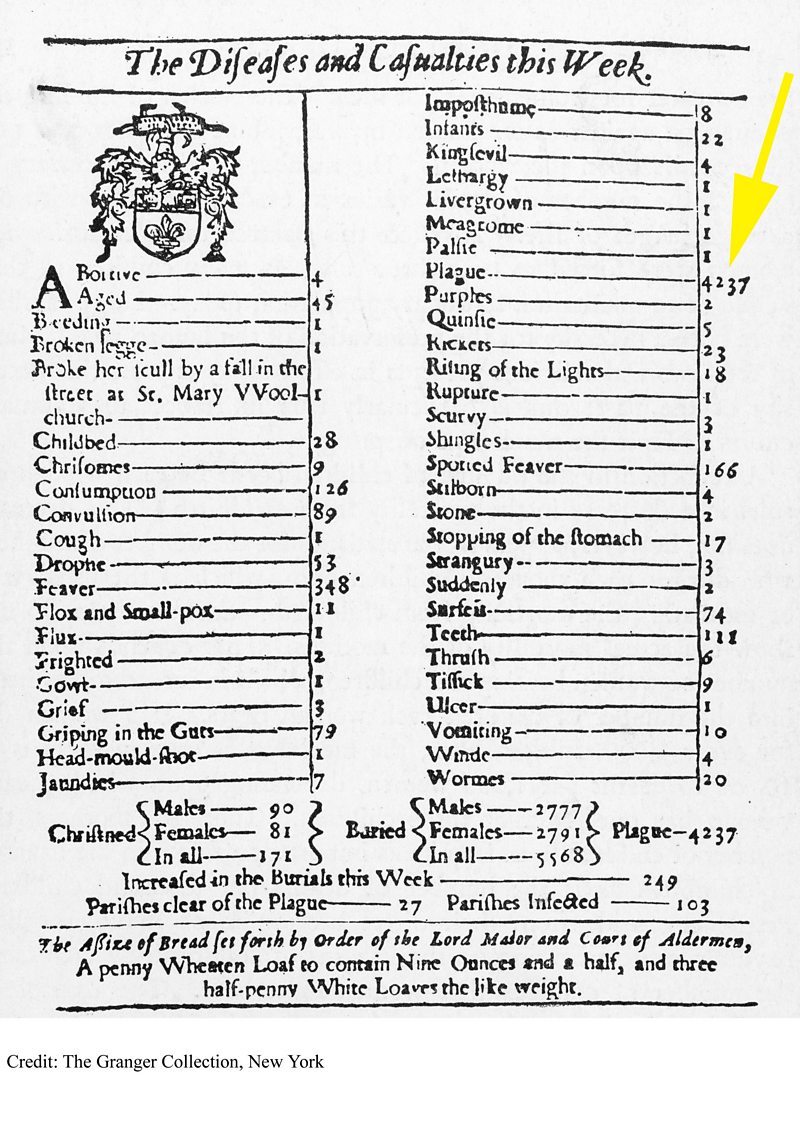 The Diſeaſes and Caſualties this Week.
ABortive 4
Aged 45
Bleeding 1
Broken legge 1
Broke her ſcull by a fall in the
ſtreet at St. Mary VVool- 1
church
Childbed 28
Chriſomes 9
Conſumption 126
Convulſion 89
Cough 1
Dropſie 53
Feaver 348
Flox and Small-pox 11
Flux 1
Frighted 2
Gowt 1
Grief 3
Griping in the Guts 79
Head-mould-ſhot 1
Jaundies 7
Impoſthume 8
Infants 22
Kingſevil 4
Lethargy 1
Livergrown 1
Meagrome 1
Palſie 1
Plague 4237
Purples 2
Quinſie 5
Rickets 23
Riſing of the Lights 18
Rupture 1
Scurvy 3
Shingles 1
Spotted Feaver 166
Stilborn 4
Stone 2
Stopping of the ſtomach 17
Strangury 3
Suddenly 2
Surfeit 74
Teeth 111
Thruſh 6
Tiſſick 9
Ulcer 1
Vomiting 10
Winde 4
Wormes 20
Chriſtned Males 90 Females 81 In all 171
Buried Males 2777 Females 2791 In all 5568
Plague 4237
Increaſed in the Burials this Week 249
Pariſhes clear of the Plague 27 Pariſhes Infected 103
The Aſſize of Bread ſet forth by Order of the Lord Maior and Court of Aldermen,
A penny Wheaten Loaf to contain Nine Ounces and a half, and three
half-penny White Loaves the like weight.
Credit: The Granger Collection, New York